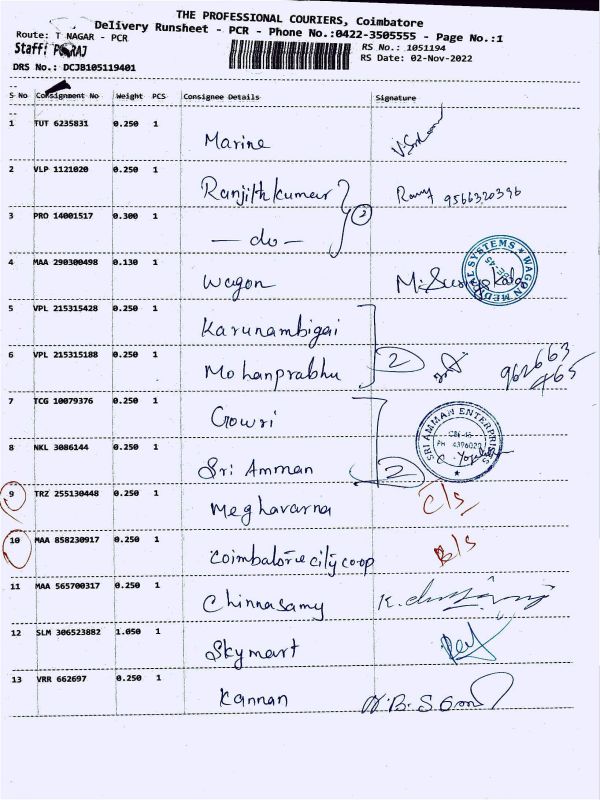 THE PROFESSIONAL COURIERS, Coimbatore
Delivery Runsheet - PCR - Phone No.:0422-3505555 - Page No.:1
Route: T NAGAR - PCR
RS No.: 1051194
Staff:
RS Date: 02-Nov-2022
DRS No.: DCJB105119401
S No Consignment No Weight PCS Consignee Details Signature
1 TUT 6235831 0.250 1 Marine
2 VLP 1121020 0.250 1 Ranjithkumar 9566320396
3 PRO 14001517 0.300 1 — do —
4 MAA 290300498 0.130 1 Wagon
WAGON MEDICAL SYSTEMS
5 VPL 215315428 0.250 1 Karunambigai
6 VPL 215315188 0.250 1 Mohanprabhu 2 962663
465
7 TCG 10079376 0.250 1 Gowri
SRI AMMAN ENTERPRISES
8 NKL 3086144 0.250 1 Sri Amman 2
9 TRZ 255130448 0.250 1 Meghavarna C/S
10 MAA 858230917 0.250 1 Coimbatore city co-op B/S
11 MAA 565700317 0.250 1 Chinnasamy
12 SLM 306523882 1.050 1 Skymart
13 VRR 662697 0.250 1 Kannan